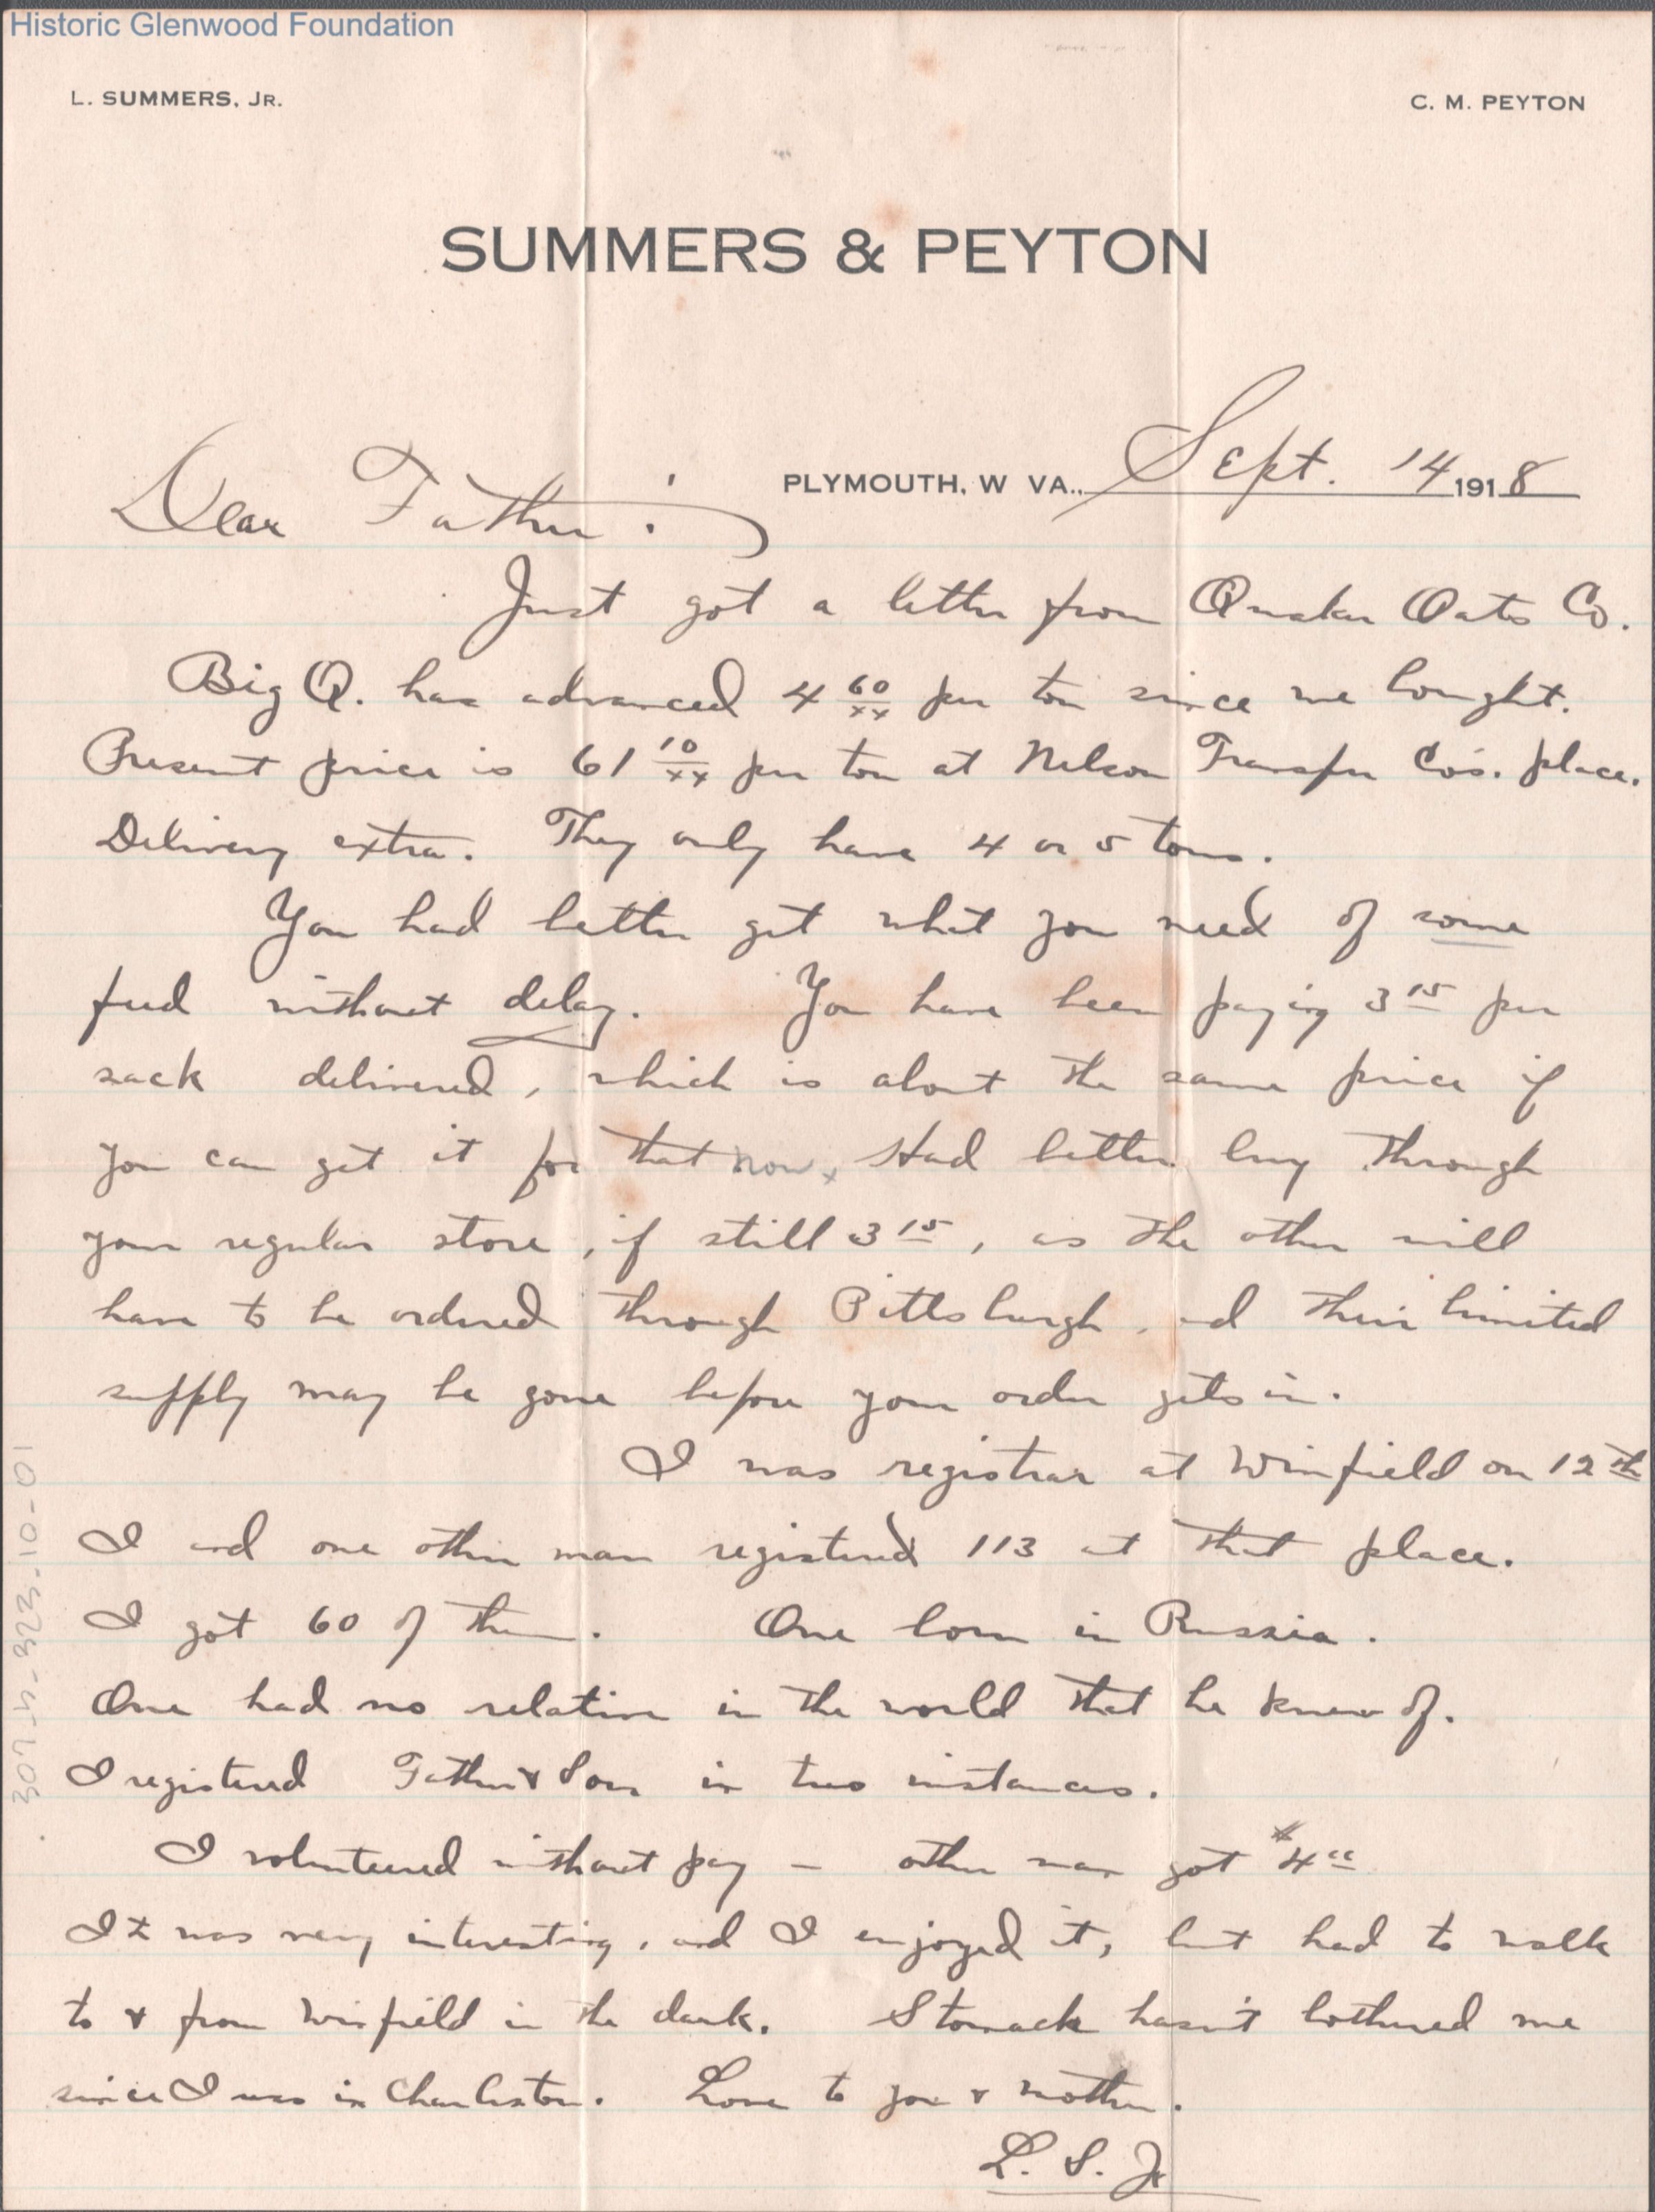 Historic Glenwood Foundation
L. SUMMERS, JR.
C. M. PEYTON
SUMMERS & PEYTON
PLYMOUTH, W VA., Sept. 14 1918
Dear Father:
Just got a letter from Quaker Oats Co.
Big Q. has advanced 4 60/xx per ton since we bought.
Present price is 61 10/xx per ton at Nelson Transfer Co's. place.
Delivery extra. They only have 4 or 5 tons.
You had better get what you need of some
feed without delay. You have been paying 3 15 per
sack delivered, which is about the same price if
you can get it for that now. Had better buy through
your regular store, if still 3 15, as the other will
have to be ordered through Pittsburgh, and their limited
supply may be gone before your order gets in.
I was registrar at Winfield on 12th
I and one other man registered 113 at that place.
I got 60 of them. One born in Russia.
One had no relative in the world that he knew of.
I registered Father & Son in two instances.
I volunteered without pay - other man got $4 00
It was very interesting, and I enjoyed it, but had to walk
to & from Winfield in the dark. Stomack hasn't bothered me
since I was in Charleston. Love to you & mother.
L. S. Jr
307-4-323-10-01